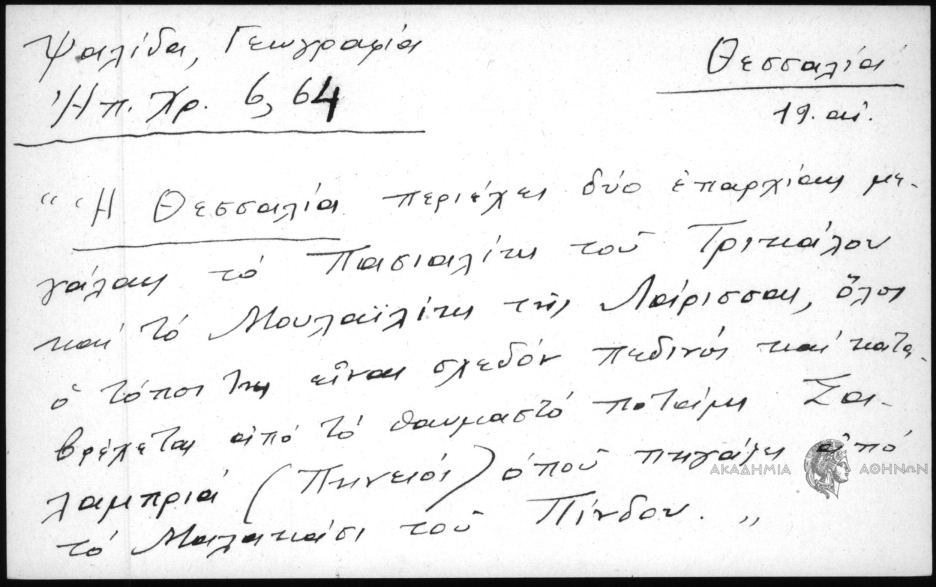 Ψαλίδα, Γεωγραφία
Ἠπ. Χρ. 6, 64
Θεσσαλία
19. αἰ.
"Ἡ Θεσσαλία περιέχει δύο ἐπαρχίαις με-
γάλαις τό Πασιαλίκι τοῦ Τρικάλου
καί τό Μουλαϊλίκι τῆς Λάρισσας, ὅλος
ὁ τόπος της εἶναι σχεδόν πεδινός καί κατα-
βρέχεται ἀπό τό θαυμαστό ποτάμι Σα-
λαμπριά (Πηνειός) ὁποῦ πηγάζει ἀπό
τό Μαλακάσι τοῦ Πίνδου."
ΑΚΑΔΗΜΙΑ ΑΘΗΝΩΝ